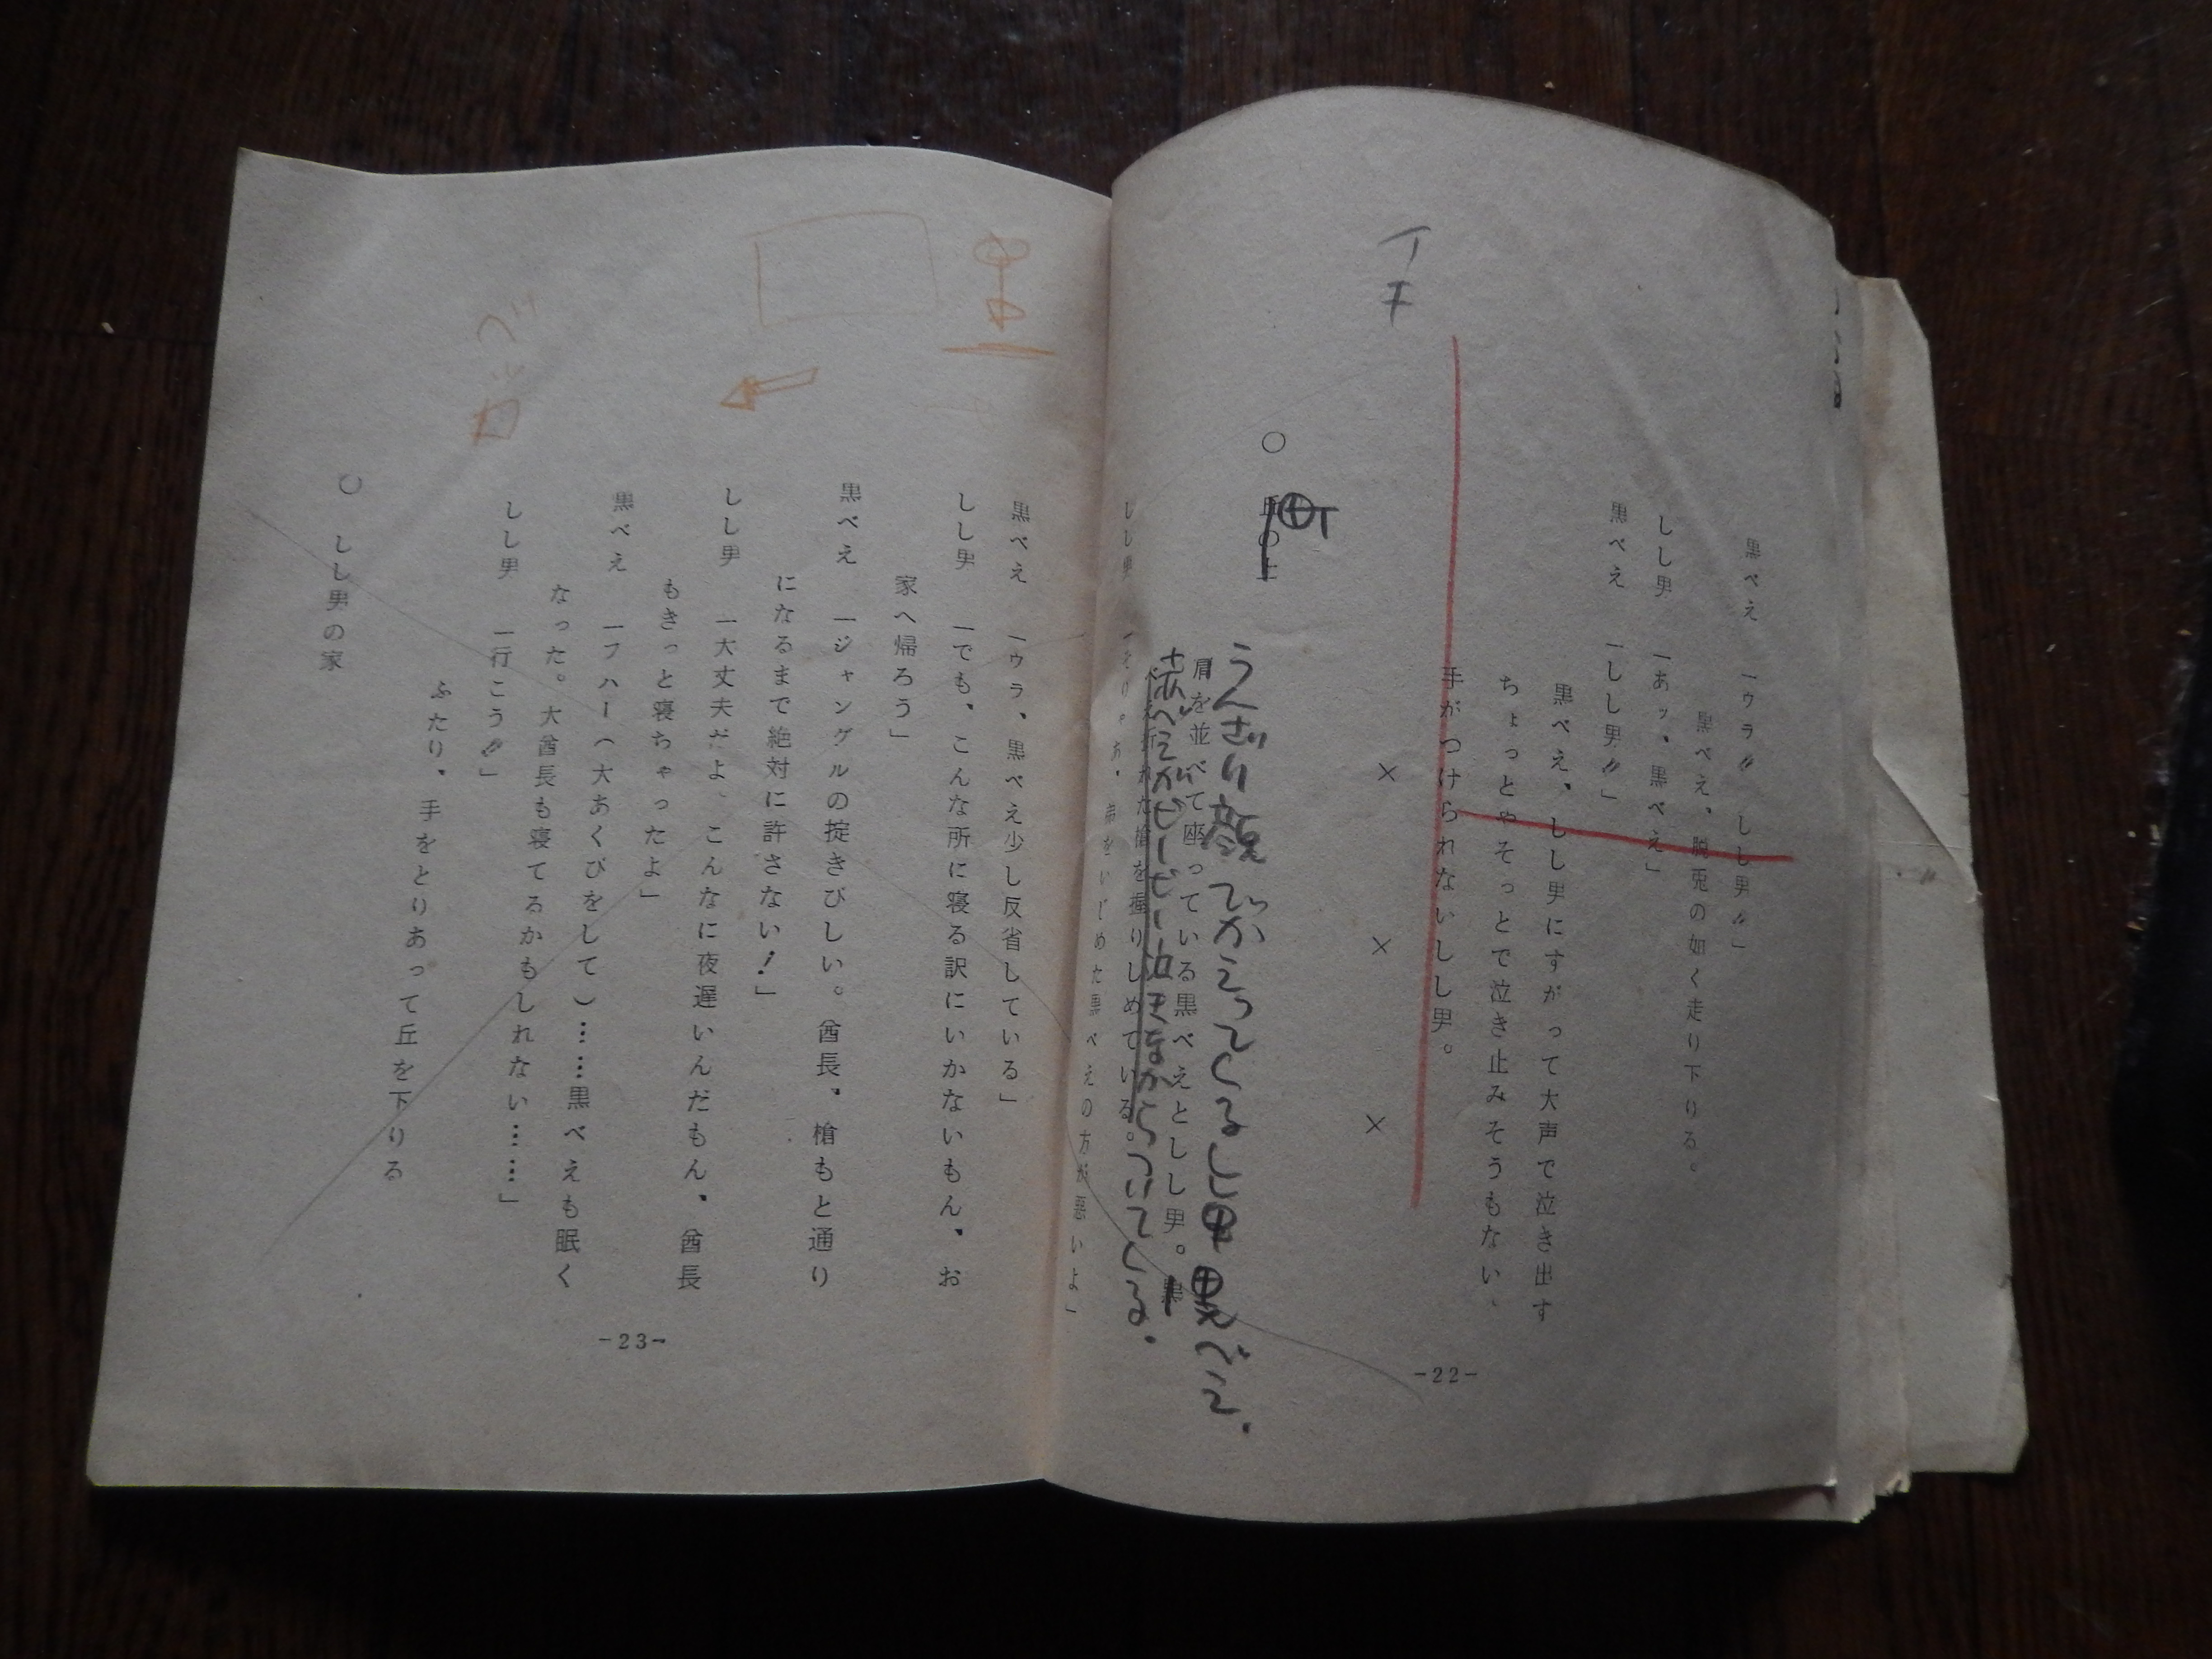 黒べえ 「ウラ〃 しし男〃」
黒べえ、脱兎の如く走り下りる。
しし男 「あッ、黒べえ」
黒べえ 「しし男〃」
黒べえ、しし男にすがって大声で泣き出す
ちょっとやそっとで泣き止みそうもない、
手がつけられないしし男。
× × ×
○ 丘の上
うんざり顔でかえってくるしし男 黒べえ.
肩を並べて座っている黒べえとしし男。黒
べえ折れた槍を握りしめている。
赤べえがビービー泣きながらついてくる.
しし男 「そりゃあ、弟をいじめた黒べえの方が悪いよ」
-22-
黒べえ 「ウラ、黒べえ少し反省している」
しし男 「でも、こんな所に寝る訳にいかないもん、お
家へ帰ろう」
黒べえ 「ジャングルの掟きびしい。酋長、槍もと通り
になるまで絶対に許さない!」
しし男 「大丈夫だよ、こんなに夜遅いんだもん、酋長
もきっと寝ちゃったよ」
黒べえ 「フハー(大あくびをして)……黒べえも眠く
なった。大酋長も寝てるかもしれない……」
しし男 「行こう〃」
ふたり、手をとりあって丘を下りる
○ しし男の家
-23-